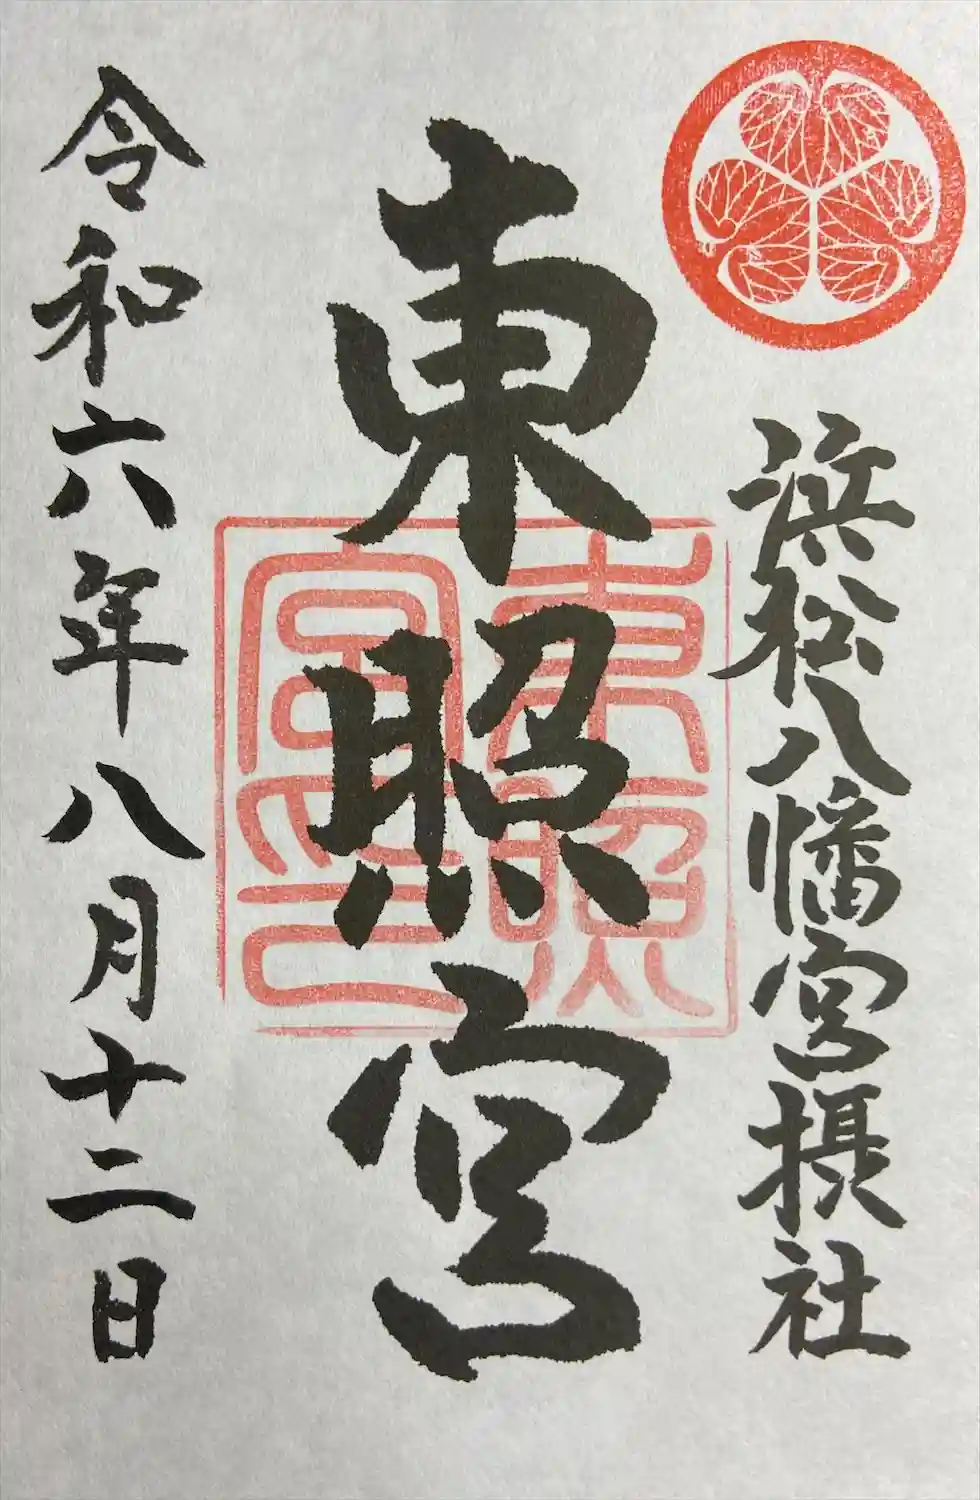 浜松八幡宮摂社
東照宮
東照
宮印
令和六年八月十二日